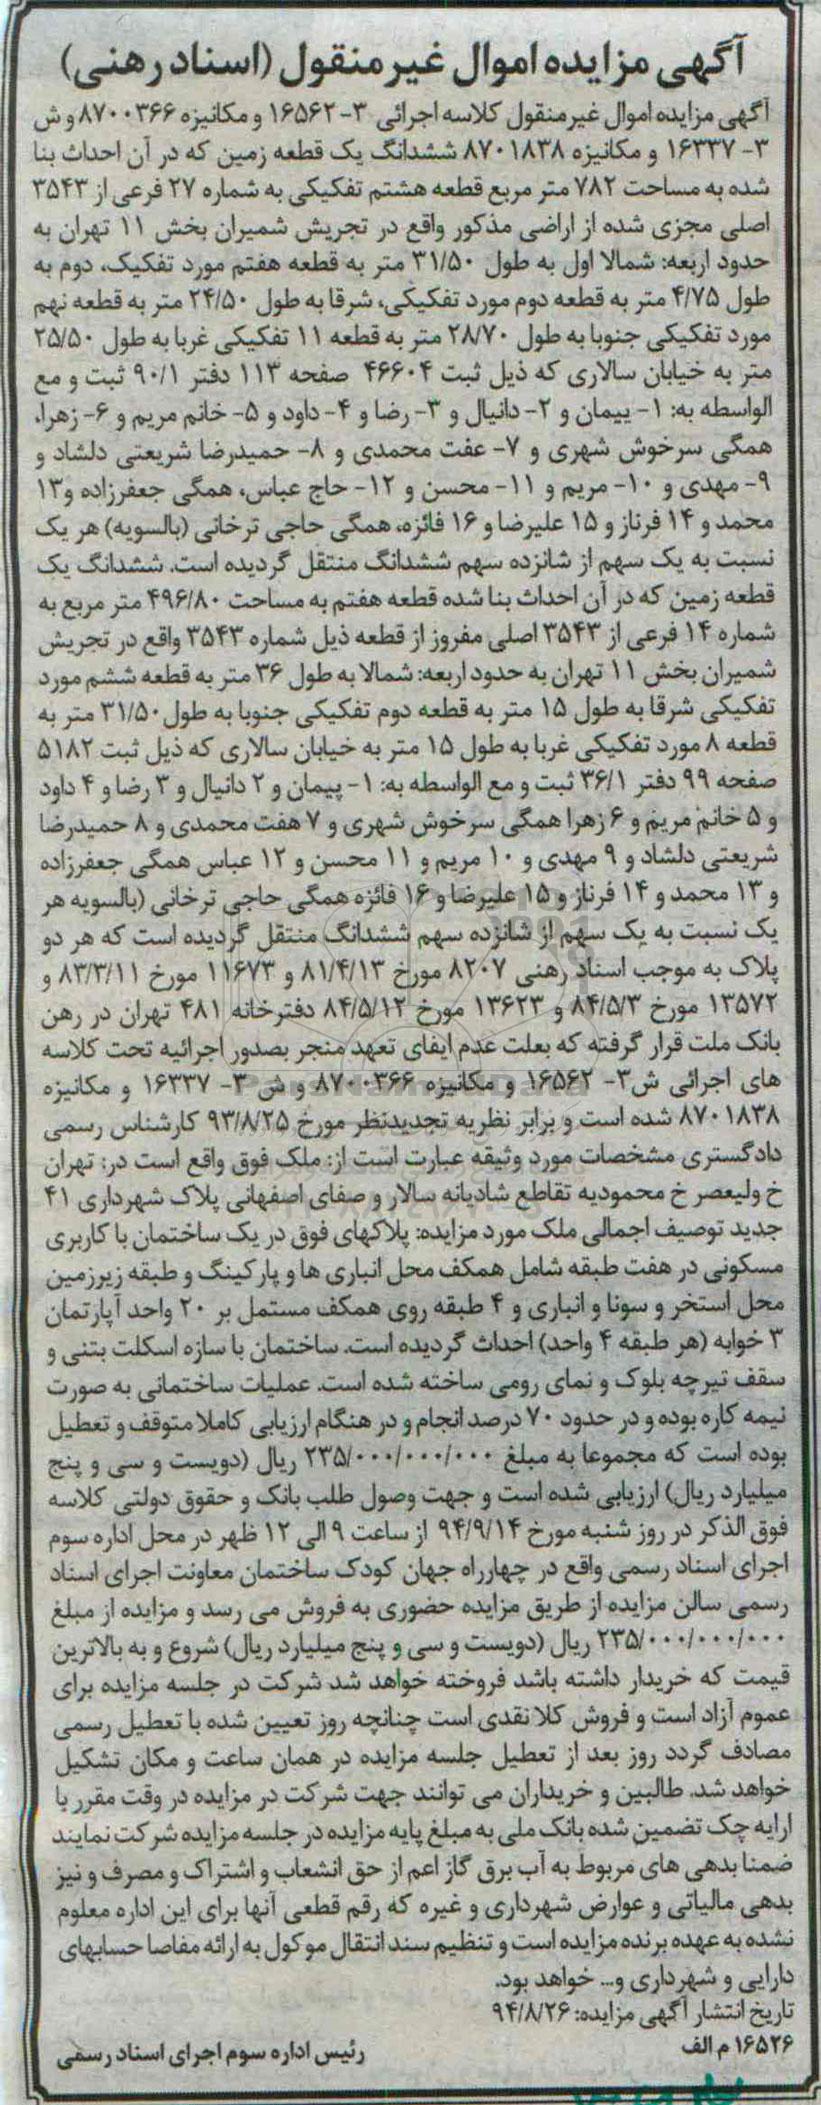 آگهی مزایده اموال غیرمنقول (اسناد رهنی)
آگهی مزایده اموال غیرمنقول کلاسه اجرائی ۳-۱۶۵۶۲ و مکانیزه ۸۷۰۰۳۶۶ و ش
۳-۱۶۳۳۷ و مکانیزه ۸۷۰۱۸۳۸ ششدانگ یک قطعه زمین که در آن احداث بنا
شده به مساحت ۷۸۲ متر مربع قطعه هشتم تفکیکی به شماره ۲۷ فرعی از ۳۵۴۳
اصلی مجزی شده از اراضی مذکور واقع در تجریش شمیران بخش ۱۱ تهران به
حدود اربعه: شمالا اول به طول ۳۱/۵۰ متر به قطعه هفتم مورد تفکیک، دوم به
طول ۴/۷۵ متر به قطعه دوم مورد تفکیکی، شرقا به طول ۲۴/۵۰ متر به قطعه نهم
مورد تفکیکی جنوبا به طول ۲۸/۷۰ متر به قطعه ۱۱ تفکیکی غربا به طول ۲۵/۵۰
متر به خیابان سالاری که ذیل ثبت ۴۶۶۰۴ صفحه ۱۱۳ دفتر ۹۰/۱ ثبت و مع
الواسطه به: ۱- پیمان و ۲- دانیال و ۳- رضا و ۴- داود و ۵- خانم مریم و ۶- زهرا،
همگی سرخوش شهری و ۷- عفت محمدی و ۸- حمیدرضا شریعتی دلشاد و
۹- مهدی و ۱۰- مریم و ۱۱- محسن و ۱۲- حاج عباس، همگی جعفرزاده و۱۳
محمد و ۱۴ فرناز و ۱۵ علیرضا و ۱۶ فائزه، همگی حاجی ترخانی (بالسویه) هر یک
نسبت به یک سهم از شانزده سهم ششدانگ منتقل گردیده است. ششدانگ یک
قطعه زمین که در آن احداث بنا شده قطعه هفتم به مساحت ۴۹۶/۸۰ متر مربع به
شماره ۱۴ فرعی از ۳۵۴۳ اصلی مفروز از قطعه ذیل شماره ۳۵۴۳ واقع در تجریش
شمیران بخش ۱۱ تهران به حدود اربعه: شمالا به طول ۳۶ متر به قطعه ششم مورد
تفکیکی شرقا به طول ۱۵ متر به قطعه دوم تفکیکی جنوبا به طول ۳۱/۵۰ متر به
قطعه ۸ مورد تفکیکی غربا به طول ۱۵ متر به خیابان سالاری که ذیل ثبت ۵۱۸۲
صفحه ۹۹ دفتر ۳۶/۱ ثبت و مع الواسطه به: ۱- پیمان و ۲ دانیال و ۳ رضا و ۴ داود
و ۵ خانم مریم و ۶ زهرا همگی سرخوش شهری و ۷ هفت محمدی و ۸ حمیدرضا
شریعتی دلشاد و ۹ مهدی و ۱۰ مریم و ۱۱ محسن و ۱۲ عباس همگی جعفرزاده
و ۱۳ محمد و ۱۴ فرناز و ۱۵ علیرضا و ۱۶ فائزه همگی حاجی ترخانی (بالسویه هر
یک نسبت به یک سهم از شانزده سهم ششدانگ منتقل گردیده است که هر دو
پلاک به موجب اسناد رهنی ۸۲۰۷ مورخ ۸۱/۴/۱۳ و ۱۱۶۷۳ مورخ ۸۳/۳/۱۱ و
۱۳۵۷۲ مورخ ۸۴/۵/۳ و ۱۳۶۲۳ مورخ ۸۴/۵/۱۲ دفترخانه ۴۸۱ تهران در رهن
بانک ملت قرار گرفته که بعلت عدم ایفای تعهد منجر بصدور اجرائیه تحت کلاسه
های اجرائی ش۳- ۱۶۵۶۲ و مکانیزه ۸۷۰۰۳۶۶ و ش ۳- ۱۶۳۳۷ و مکانیزه
۸۷۰۱۸۳۸ شده است و برابر نظریه تجدیدنظر مورخ ۹۳/۸/۲۵ کارشناس رسمی
دادگستری مشخصات مورد وثیقه عبارت است از: ملک فوق واقع است در: تهران
خ ولیعصر خ محمودیه تقاطع شادیانه سالار و صفای اصفهانی پلاک شهرداری ۴۱
جدید توصیف اجمالی ملک مورد مزایده: پلاکهای فوق در یک ساختمان با کاربری
مسکونی در هفت طبقه شامل همکف محل انباری ها و پارکینگ و طبقه زیرزمین
محل استخر و سونا و انباری و ۴ طبقه روی همکف مستمل بر ۲۰ واحد آپارتمان
۳ خوابه (هر طبقه ۴ واحد) احداث گردیده است. ساختمان با سازه اسکلت بتنی و
سقف تیرچه بلوک و نمای رومی ساخته شده است. عملیات ساختمانی به صورت
نیمه کاره بوده و در حدود ۷۰ درصد انجام و در هنگام ارزیابی کاملا متوقف و تعطیل
بوده است که مجموعا به مبلغ ۲۳۵/۰۰۰/۰۰۰/۰۰۰ ریال (دویست و سی و پنج
میلیارد ریال) ارزیابی شده است و جهت وصول طلب بانک و حقوق دولتی کلاسه
فوق الذکر در روز شنبه مورخ ۹۴/۹/۱۴ از ساعت ۹ الی ۱۲ ظهر در محل اداره سوم
اجرای اسناد رسمی واقع در چهارراه جهان کودک ساختمان معاونت اجرای اسناد
رسمی سالن مزایده از طریق مزایده حضوری به فروش می رسد و مزایده از مبلغ
۲۳۵/۰۰۰/۰۰۰/۰۰۰ ریال (دویست و سی و پنج میلیارد ریال) شروع و به بالاترین
قیمت که خریدار داشته باشد فروخته خواهد شد شرکت در جلسه مزایده برای
عموم آزاد است و فروش کلا نقدی است چنانچه روز تعیین شده با تعطیل رسمی
مصادف گردد روز بعد از تعطیل جلسه مزایده در همان ساعت و مکان تشکیل
خواهد شد. طالبین و خریداران می توانند جهت شرکت در مزایده در وقت مقرر با
ارایه چک تضمین شده بانک ملی به مبلغ پایه مزایده در جلسه مزایده شرکت نمایند
ضمنا بدهی های مربوط به آب برق گاز اعم از حق انشعاب و اشتراک و مصرف و نیز
بدهی مالیاتی و عوارض شهرداری و غیره که رقم قطعی آنها برای این اداره معلوم
نشده به عهده برنده مزایده است و تنظیم سند انتقال موکول به ارائه مفاصا حسابهای
دارایی و شهرداری و... خواهد بود.
تاریخ انتشار آگهی مزایده: ۹۴/۸/۲۶
۱۶۵۲۶ م الف رئیس اداره سوم اجرای اسناد رسمی